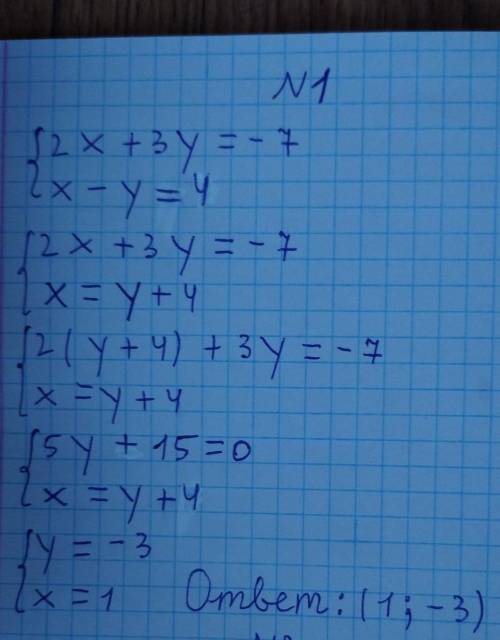 N1
{2x + 3y = -7
{x - y = 4
{2x + 3y = -7
{x = y + 4
{2(y + 4) + 3y = -7
{x = y + 4
{5y + 15 = 0
{x = y + 4
{y = -3
{x = 1 Ответ: (1; -3)